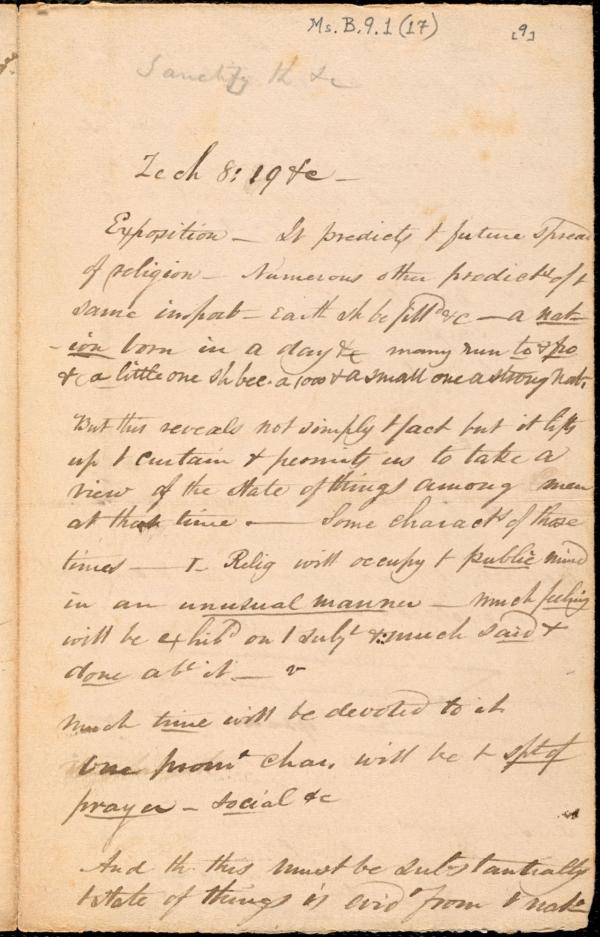 Ms. B. 9. 1 (17)
[9]
Sanctify th &c
Zech 8: 19 &c —
Exposition — It predicts t future spread
of religion — Numerous other predicts of t
same import — Earth sh be fill'd &c — a nat-
-ion born in a day &c many run to & fro
& a little one sh bec. a 1000 & a small one a strong nat.
But this reveals not simply t fact but it lifts
up t curtain & permits us to take a
view of the state of things among men
at that time — Some charact's of those
times — I. Relig will occupy t public mind
in an unusual manner — much feeling
will be exhib'd on t subj't & much said &
done ab't it —
Much time will be devoted to it
One prom't char. will be t sp't of
prayer — social &c
And th this must be substantially
t state of things is evid't from t nat-